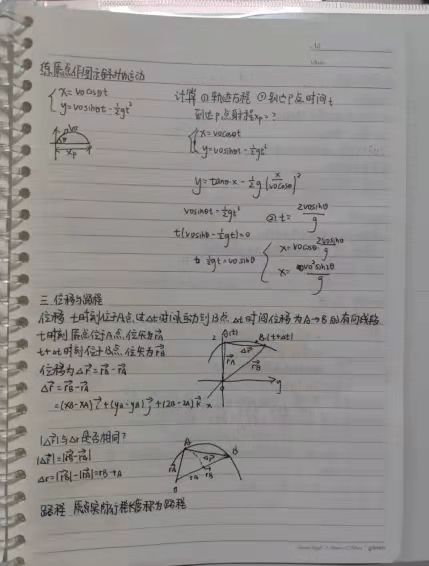 练质点作图示斜抛运动
x=v0cosθt
y=v0sinθt-½gt²
计算 ①轨迹方程 ②到达P点时间t
到达P点射程xp=?
x=v0cosθt
y=v0sinθt-½gt²
v0
xp
y=tanθ·x-½g(x/v0cosθ)²
v0sinθt-½gt²
② t=2v0sinθ/g
t(v0sinθ-½gt)=0
½gt=v0sinθ
x=v0cosθ·2v0sinθ/g
x=v0²sin2θ/g
三.位移与路程
位移 t时刻位于A点,过Δt时间运动到B点,Δt时间位移为A→B的有向线段
t时刻质点位于A点,位矢为r⃗A
t+Δt时刻位于B点,位矢为r⃗B
位移为Δr⃗=r⃗B-r⃗A
Δr⃗=r⃗B-r⃗A
=(xB-xA)i⃗+(yB-yA)j⃗+(zB-zA)k⃗
z
A(t)
B(t+Δt)
Δr⃗
r⃗A
r⃗B
y
x
|Δr⃗|与Δr是否相同?
|Δr⃗|=|r⃗B-r⃗A|
Δr=|r⃗B|-|r⃗A|=rB-rA
A
B
Δr⃗
r⃗A
r⃗B
路程 质点实际行径长度称为路程